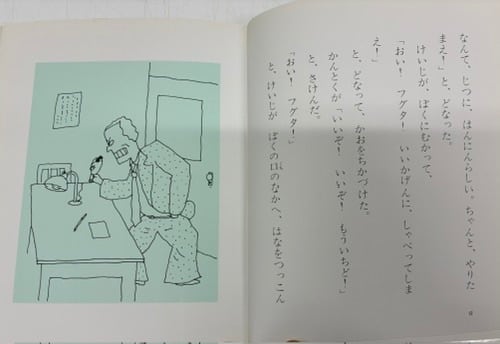 なんて、じつに、はんにんらしい。ちゃんと、やりた
まえ！」と、どなった。
けいじが、ぼくにむかって、
「おい！　フグタ！　いいかげんに、しゃべってしま
え！」
と、どなって、かおをちかづけた。
かんとくが「いいぞ！　いいぞ！　もういちど！」
と、さけんだ。
「おい！　フグタ！」
と、けいじが　ぼくの口のなかへ、はなをつっこん